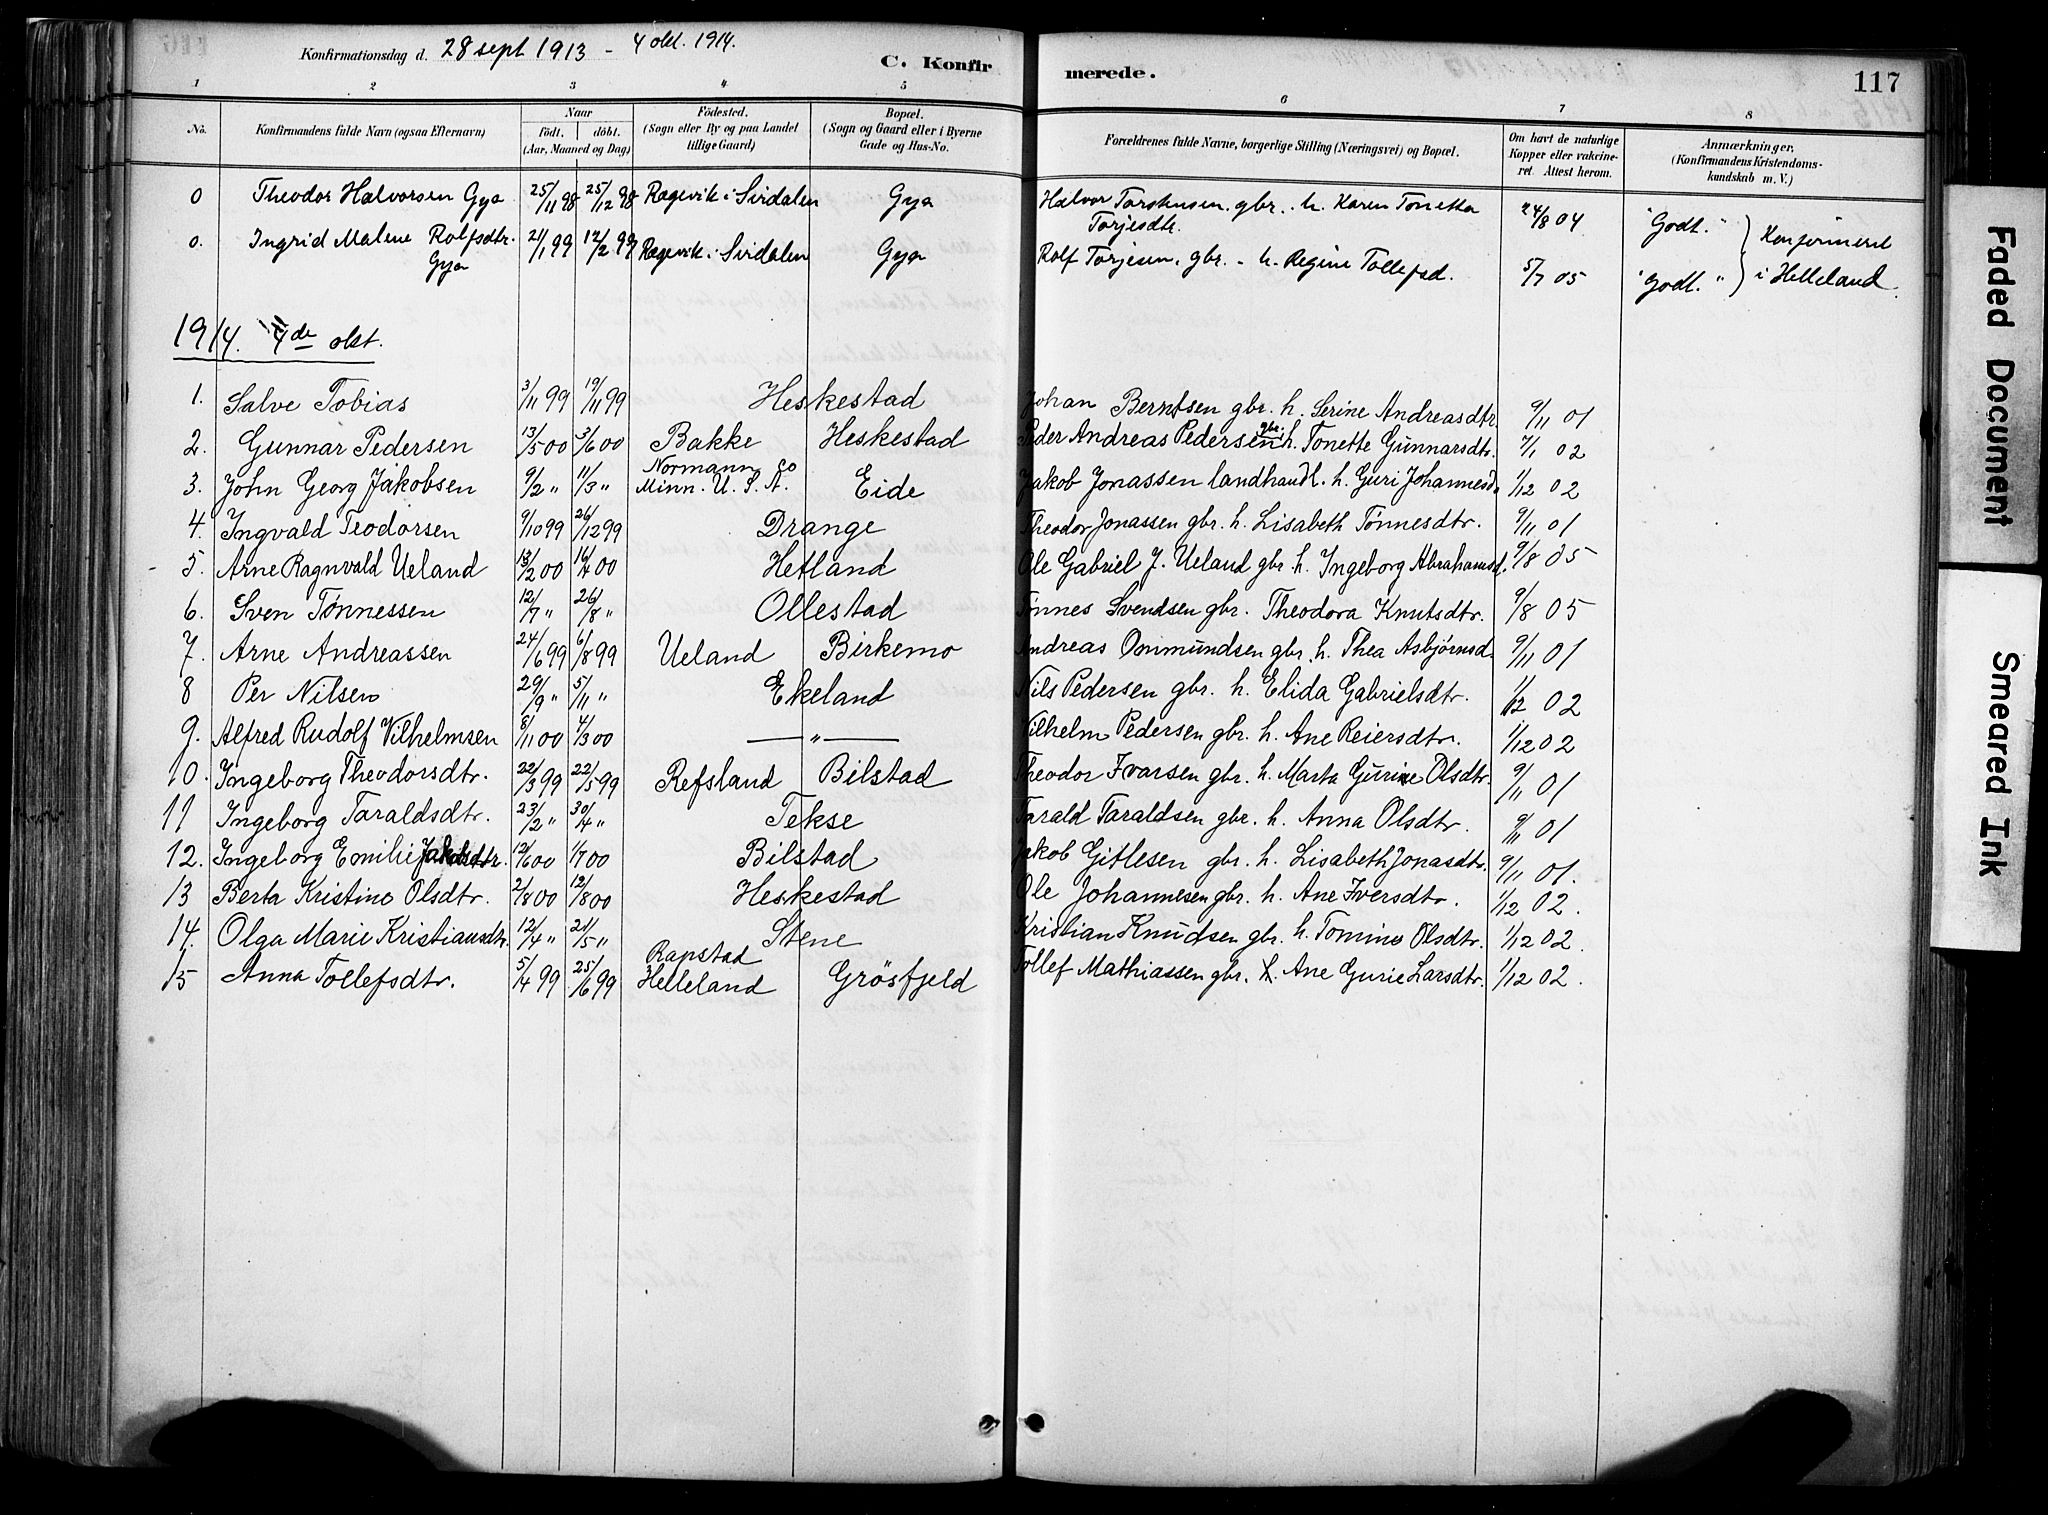 Konfirmationsdag d. 28 sept 1913 - 4 okt. 1914.
C. Konfirmerede.
117
1 2 3 4 5 6 7 8
No. Konfirmandens fulde Navn (ogsaa Efternavn) Naar født. døbt. (Aar, Maaned og Dag) Fødested. (Sogn eller By og paa Landet tillige Gaard) Bopæl. (Sogn og Gaard eller i Byerne Gade og Hus-No. Forældrenes fulde Navne, borgerlige Stilling (Næringsvei) og Bopæl. Om havt de naturlige Kopper eller vakcineret. Attest herom. Anmærkninger, (Konfirmandens Kristendomskundskab m. V.)
0 Theodor Halvorsen Gya 25/11 98 25/12 98 Ragevik i Sirdalen Gya Halvor gbr. h. Karen Tonetta Torjesdtr. 24/8 04 "Godt."
0. Ingrid Malene Rolfsdtr. Gya 21/1 99 12/2 99 Ragevik i Sirdalen Gya Rolf Torjesen, gbr. - h. Regine Tollefsd. 5/7 05 "Godt." } Konfirmeret i Helleland.
1914. 4de okt.
1. Salve Tobias 3/11 99 19/11 99 Heskestad Johan Berntsen gbr. h. Serine Andreasdtr. 9/11 01
2. Gunnar Pedersen 13/5 00 3/6 00 Bakke Heskestad Peder Andreas Pedersen gbr. h. Tonette Gunnarsdtr. 7/1 02
3. John Georg Jakobsen 9/2 " 11/3 " Normann Co Minn. U. S. A. Eide Jakob Jonassen landhandl. h. Guri Johannesd. 1/12 02
4. Ingvald Teodorsen 9/10 99 26/12 99 Drange Theodor Jonassen gbr. h. Lisabeth Tønnesdtr. 9/11 01
5. Arne Ragnvald Ueland 13/2 00 16/4 00 Hetland Ole Gabriel J. Ueland gbr. h. Ingeborg Abrahamsd. 9/8 05
6. Sven Tønnessen 12/7 " 26/8 " Ollestad Tønnes Svendsen gbr. Theodora Knutsdtr. 9/8 05
7. Arne Andreassen 24/6 99 6/8 99 Ueland Birkemo Andreas Onmundsen gbr. h. Thea Asbjørnsd. 9/11 01
8 Per Nilsen 29/9 " 5/11 " Ekeland Nils Pedersen gbr. h. Elida Gabrielsdtr. 1/12 02
9. Alfred Rudolf Vilhelmsen 8/11 00 4/3 00 — " — Vilhelm Pedersen gbr. h. Ane Reiersdtr. 1/12 02
10. Ingeborg Theodorsdtr. 22/3 99 22/5 99 Refsland Bilstad Theodor Ivarsen gbr. h. Marta Gurine Olsdtr. 9/11 01
11 Ingeborg Taraldsdtr. 23/2 " 30/4 " Tekse Tarald Taraldsen gbr. h. Anna Olsdtr. 9/11 01
12. Ingeborg Emilie Jakobsdtr. 12/6 00 1/7 00 Bilstad Jakob Gitlesen gbr. h. Lisabeth Jonasdtr. 9/11 01.
13 Berta Kristine Olsdtr. 2/8 00 12/8 00 Heskestad Ole Johannesen gbr. h. Ane Iversdtr. 1/12 02.
14. Olga Marie Kristiansdtr. 12/4 " 21/5 " Stene Kristian Knudsen gbr. h. Tomine Olsdtr. 1/12 02.
15 Anna Tollefsdtr. 5/4 99 25/6 99 Rapstad Helleland Grösfjeld Tollef Mathiassen gbr. h. Ane Gurie Larsdtr. 1/12 02.
Faded Document
Smeared Ink